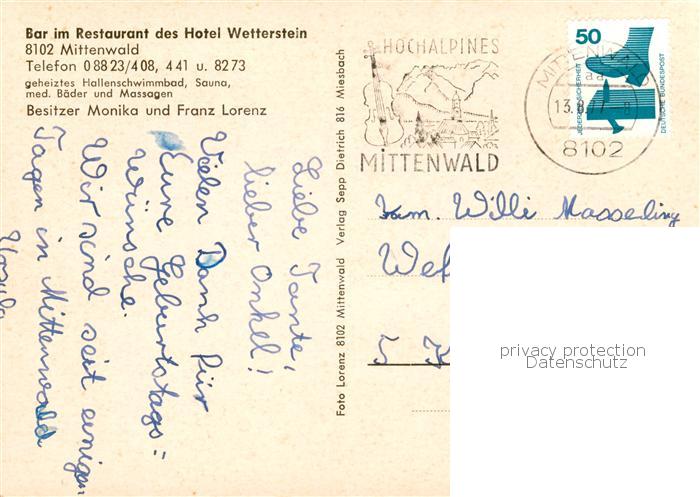 Bar im Restaurant des Hotel Wetterstein
8102 Mittenwald
Telefon 0 88 23/4 08, 4 41 u. 82 73
geheiztes Hallenschwimmbad, Sauna,
med. Bäder und Massagen
Besitzer Monika und Franz Lorenz
Liebe Tante,
lieber Onkel!
Vielen Dank für
Eure Geburtstags=
wünsche.
Wir sind seit einigen
Tagen in Mittenwald
Ursula
Foto Lorenz 8102 Mittenwald Verlag Sepp Dietrich 816 Miesbach
HOCHALPINES
MITTENWALD
MITTENWALD
13.8.77-8
8102
50
JEDERZEIT SICHERHEIT
DEUTSCHE BUNDESPOST
Fam. Willi Masseling
5 K
privacy protection
Datenschutz